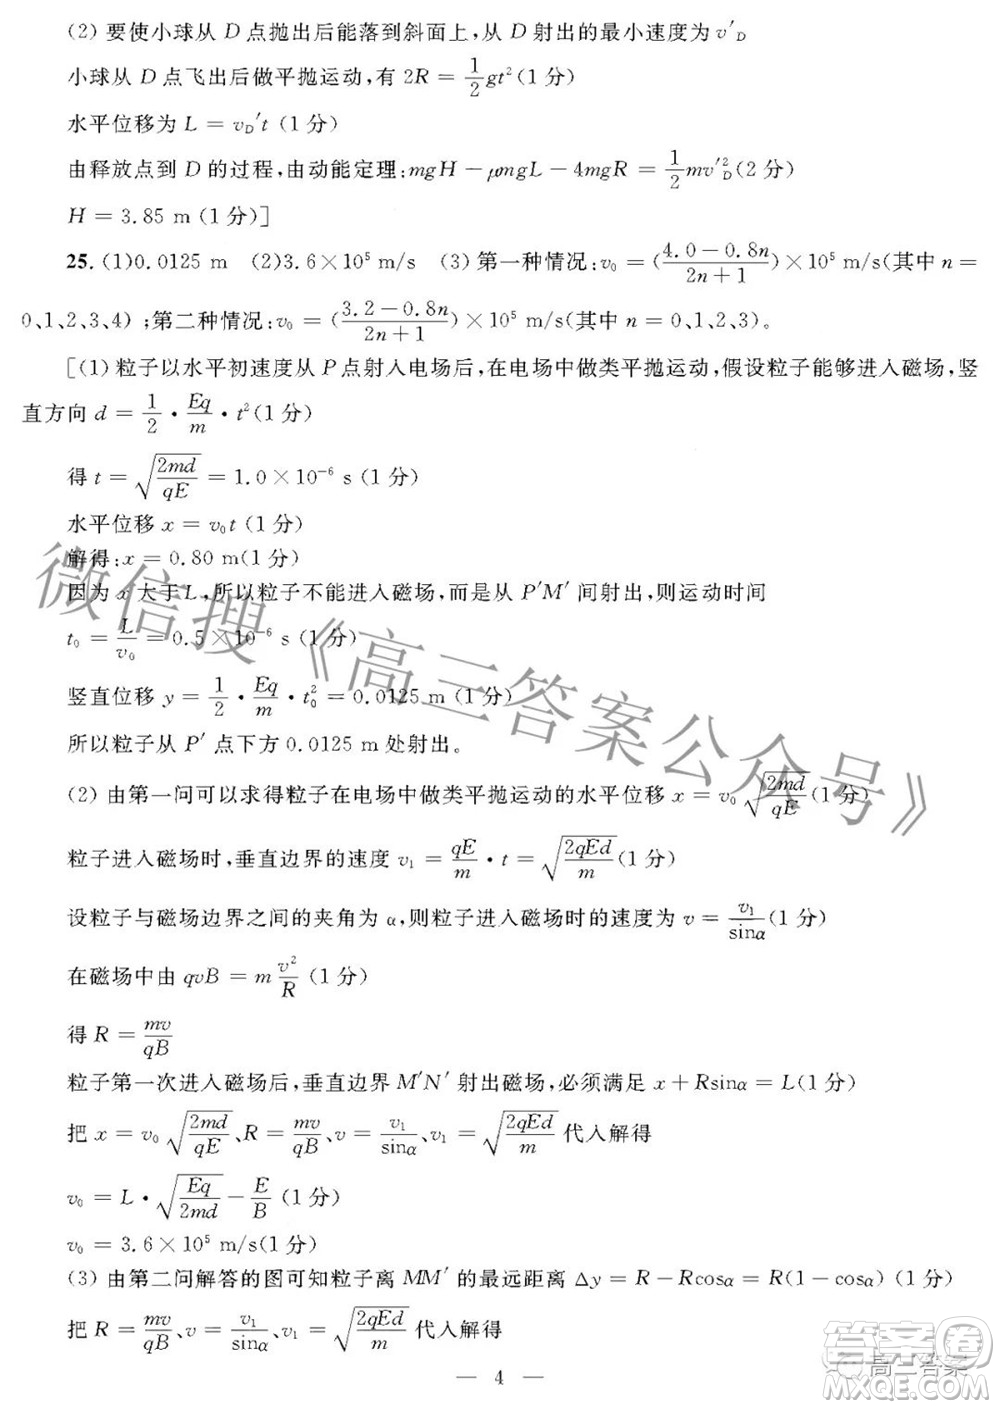 (2) 要使小球从 D 点抛出后能落到斜面上,从 D 射出的最小速度为 v′_D
小球从 D 点飞出后做平抛运动,有 2R = 1/2 gt²(1 分)
水平位移为 L = v_D′t (1 分)
由释放点到 D 的过程,由动能定理:mgH − μmgL − 4mgR = 1/2 mv′²_D(2 分)
H = 3.85 m (1 分)]
25. (1)0.0125 m (2)3.6×10⁵ m/s (3) 第一种情况:v₀ = ((4.0−0.8n)/(2n+1))×10⁵ m/s(其中 n =
0、1、2、3、4) ;第二种情况:v₀ = ((3.2−0.8n)/(2n+1))×10⁵ m/s(其中 n = 0、1、2、3)。
[(1) 粒子以水平初速度从 P 点射入电场后,在电场中做类平抛运动,假设粒子能够进入磁场,竖
直方向 d = 1/2 · Eq/m · t²(1 分)
得 t = √(2md/qE) = 1.0×10⁻⁶ s (1 分)
水平位移 x = v₀t (1 分)
解得:x = 0.80 m(1 分)
因为 x 大于 L,所以粒子不能进入磁场,而是从 P′M′ 间射出,则运动时间
t₀ = L/v₀ = 0.5×10⁻⁶ s (1 分)
竖直位移 y = 1/2 · Eq/m · t₀² = 0.0125 m (1 分)
所以粒子从 P′ 点下方 0.0125 m 处射出。
(2) 由第一问可以求得粒子在电场中做类平抛运动的水平位移 x = v₀ √(2md/qE) (1 分)
粒子进入磁场时,垂直边界的速度 v₁ = qE/m · t = √(2qEd/m)(1 分)
设粒子与磁场边界之间的夹角为 α,则粒子进入磁场时的速度为 v = v₁/sinα(1 分)
在磁场中由 qvB = m v²/R (1 分)
得 R = mv/qB
粒子第一次进入磁场后,垂直边界 M′N′ 射出磁场,必须满足 x + Rsinα = L(1 分)
把 x = v₀ √(2md/qE)、R = mv/qB、v = v₁/sinα、v₁ = √(2qEd/m) 代入解得
v₀ = L · √(Eq/2md) − E/B (1 分)
v₀ = 3.6×10⁵ m/s(1 分)
(3) 由第二问解答的图可知粒子离 MM′ 的最远距离 Δy = R − Rcosα = R(1 − cosα) (1 分)
把 R = mv/qB、v = v₁/sinα、v₁ = √(2qEd/m) 代入解得
— 4 —
微信搜《高三答案公众号》
答案圈
高三答案
MXQE.COM